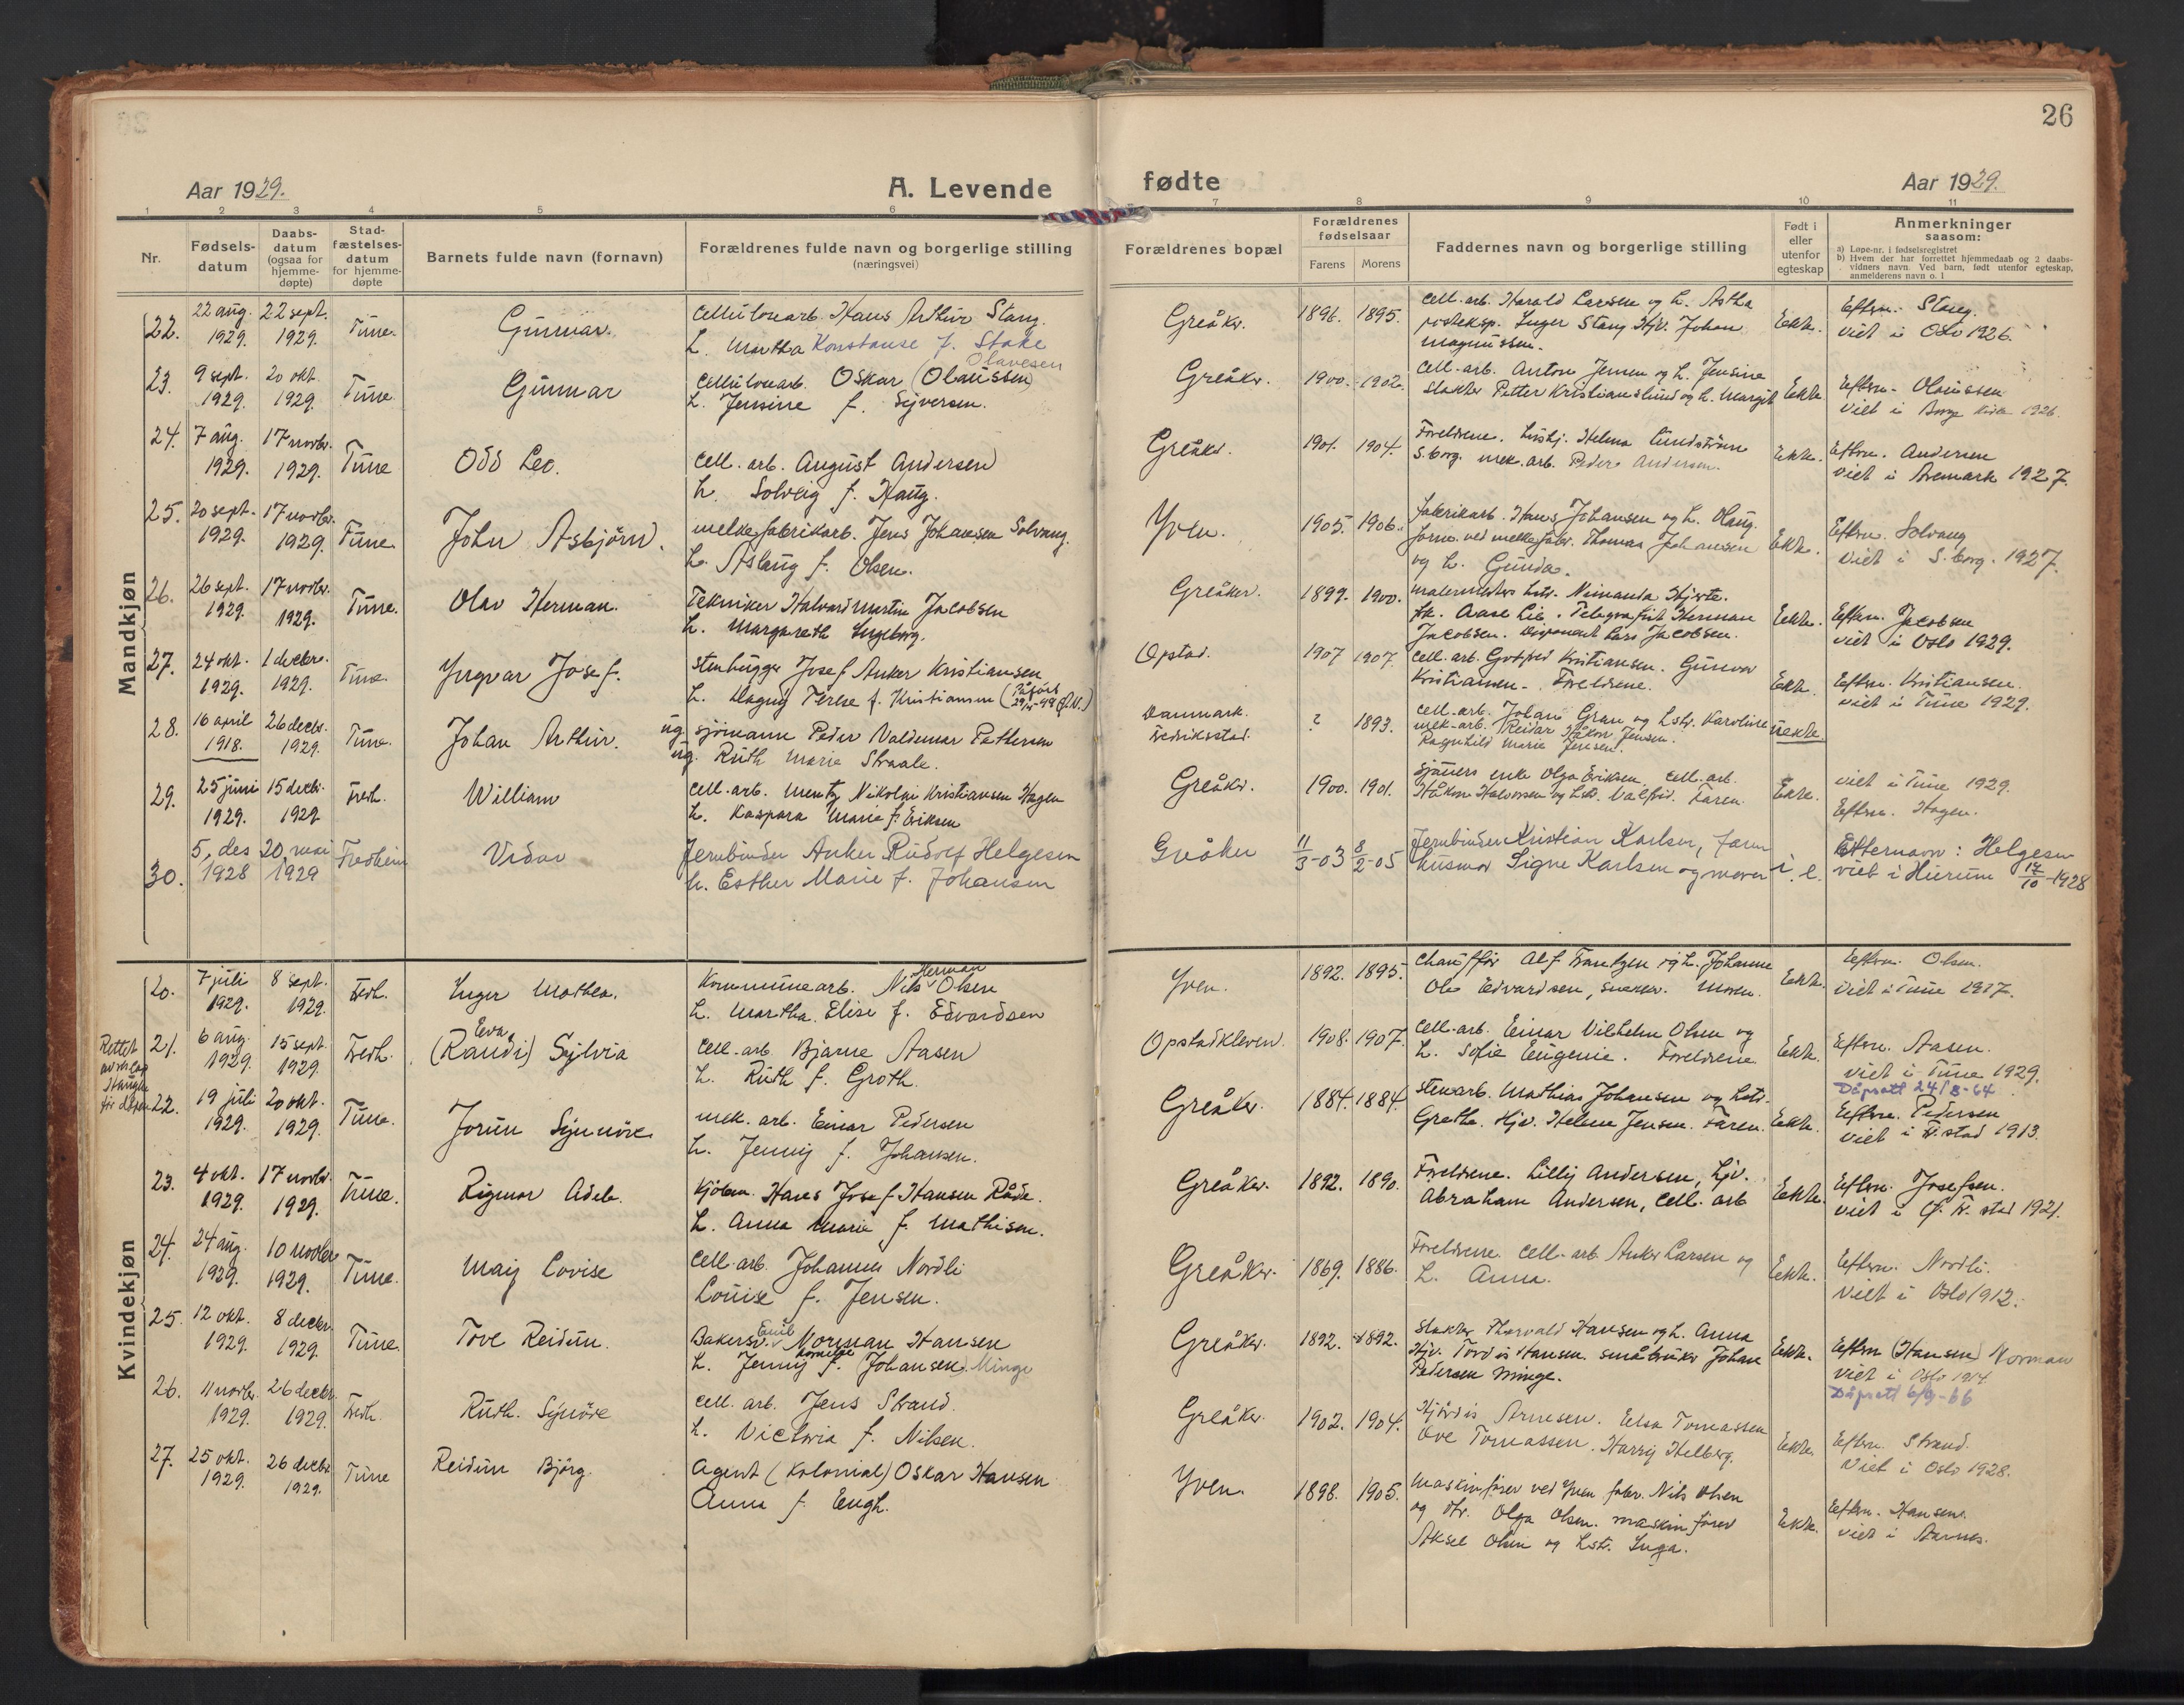 26
Aar 1929.
A. Levende
fødte
Aar 1929.
1 2 3 4 5 6 7 8 9 10 11
Nr.
Fødsels-
datum
Daabs-
datum
(ogsaa for
hjemme-
døpte)
Stad-
fæstelses-
datum
for hjemme-
døpte
Barnets fulde navn (fornavn)
Forældrenes fulde navn og borgerlige stilling
(næringsvei)
Forældrenes bopæl
Forældrenes
fødselsaar
Farens
Morens
Faddernes navn og borgerlige stilling
Født i
eller
utenfor
egteskap
Anmerkninger
saasom:
a) Løpe-nr. i fødselsregistret
b) Hvem der har forrettet hjemmedaab og 2 daabs-
vidners navn. Ved barn, født utenfor egteskap,
anmelderens navn o. l
Mandkjøn
22.
22 aug.
1929.
22 sept.
1929.
Tune.
Gunnar.
Cellulosearb. Hans Arthur Stang.
h. Martha Konstanse f. Stake
Greåker.
1896. 1895.
cell-arb. Harald Larsen og h. Astha
posteksp. Inger Stang Hjv. Johan
Magnussen.
Ekte.
Eftern. Stang.
viet i Oslo 1926.
23.
9 sept.
1929.
20 okt.
1929.
Tune
Gunnar
Olavesen
Cellulosearb. Oskar (Olaussen)
h. Jensine f. Syversen.
Greåker.
1900. 1902.
Cell-arb. Anton Jensen og h. Jensine
slakter Petter Kristianslund og h. Margit
Ekte.
Eftern. Olaussen
viet i Borge kirke 1926.
24.
7 aug.
1929.
17 novbr.
1929.
Tune
Odd Leo.
Cell. arb. August Andersen
h. Solveig f. Haug.
Greåker.
1901. 1904.
Foreldrene. Helena Lundstrøm
S.borg. mek. arb. Peder Andersen.
Ekte.
Eftern. Andersen
viet i Aremark 1927.
25.
20 sept.
1929.
17 novbr.
1929.
Tune.
John Asbjörn.
melkefabrikarb. Jens Johansen Solvang.
h. Aslaug f. Olsen.
Yven.
1905. 1906.
fabrikarb. Hans Johansen og h. Olaug.
form. ved melkefabr. Thomas Johansen
og h. Gunda.
Ekte.
Eftern. Solvang
viet i S.borg. 1927.
26.
26 sept.
1929.
17 novbr.
1929.
Tune.
Olav Herman.
Tekniker Halvard Martin Jacobsen
h. Margareth Ingeborg.
Greåker.
1899. 1900.
malermesters hstr. Nimanda Hjorte.
frk. Aase Lie. Telegrafist Herman
Jacobsen. disponent Lars Jacobsen.
Ekte.
Eftern. Jacobsen
viet i Oslo 1929.
27.
24 okt.
1929.
1 decbr.
1929.
Tune.
Yngvar Josef.
Stenhugger Josef Anker Kristiansen
h. Dagny Terese f. Kristiansen (Påført
Opstad.
1907 1907.
cell. arb. Gotfred Kristiansen. Gunvor
Kristiansen. Foreldrene.
Ekte.
Eftern. Kristiansen.
viet i Tune 1929.
28.
16 april
1918.
26 decbr.
1929.
Tune.
Johan Arthur.
ug. sjömann Peder Valdemar Pettersen
ug. Ruth Marie Straale.
Danmark.
Fredriksstad.
? 1893.
cell-arb. Johan Gran og hstr. Karoline
mek-arb. Reidar Håkon Jensen.
Ragnhild Marie Jensen.
uekte.
29.
25 juni
1929.
15 decbr.
1929
Fredh.
William
cell-arb. Mentz Nikolai Kristiansen Hagen
h. Kaspara Marie f. Eriksen
Greåker.
1900. 1901.
sjömers enke Olga Eriksen, cell. arb.
Håkon Halvorsen og hstr. Valfrid. Faren.
Ekte.
viet i Tune 1929.
Eftern. Hagen.
30.
5. des
1928
20. mai
1929
Fredheim
Vidar
Jernbinder Anker Rudolf Helgesen
h. Esther Marie f. Johansen
Gråker
11/3-03 8/2-05
Jernbinder Kristian Karlsen, faren
husmor Signe Karlsen og moren
i. e.
Etternavn: Helgesen
viet i Hurum 17/10-1928
Kvindekjøn
20.
7 juli
1929.
8 sept.
1929.
Fredh.
Inger Mathea.
Herman
Kommunearb. Nils Olsen
h. Martha Elise f. Edvardsen
Yven.
1892. 1895.
Chauffør Alf Frantzen og h. Johanne
Ole Edvardsen, snekker. Moren.
Ekte.
Eftern. Olsen.
viet i Tune 1917.
Rettet
Hauge
før dåpen
21.
6 aug.
1929.
15 sept.
1929.
Fredh.
Eeva
(Randi) Sylvia
Cell-arb. Bjarne Aasen
h. Ruth f. Groth.
Opstadkleven.
1908. 1907.
Cell-arb. Einar Vilhelm Olsen og
h. Sofie Eugenie. Foreldrene
Ekte.
Eftern. Aasen.
viet i Tune 1929.
Dåpsatt 24/8-64
22.
19 juli
1929.
20 okt.
1929.
Tune.
Jorun Synnöve
mek. arb. Einar Pedersen
h. Jenny f. Johansen.
Greåker.
1884. 1884.
Stenarb. Mathias Johansen og hstr.
Grethe. Hjv. Helene Jensen. Faren.
Ekte.
Eftern. Pedersen
viet i Fr.stad 1913.
23.
4 okt.
1929.
17 novbr.
1929.
Tune.
Rigmor Adele.
Kjöbm. Hans Josef Hansen Råde.
h. Anna Marie f. Mathisen.
Greåker.
1892. 1890.
Foreldrene. Lilly Andersen, hjv.
Abraham Andersen, Cell. arb
Ekte.
Eftern. Josefsen.
viet i Gl. Fr. stad 1921.
24.
24 aug.
1929.
10 novbr
1929.
Tune.
Maij Lovise
Cell-arb. Johannes Nordli
Louise f. Jensen.
Greåker.
1869. 1886.
Foreldrene. Cell-arb. Anker Larsen og
h. Anna.
Ekte.
Eftern. Nordli.
viet i Oslo 1912.
25.
12 okt.
1929.
8 decbr.
1929.
Tune.
Tove Reidun.
Emil
Bakersv. Norman Hansen
h. Jenny f. (Johansen) Minge
Greåker.
1892. 1892.
Slakter Thorvald Hansen og h. Anna
Hjv. Tordis Hansen. småbruker Johan
Pedersen Minge.
Ekte.
Eftern (Hansen) Norman
viet i Oslo 1914.
Dåpsatt 6/9-66
26.
11 novbr.
1929.
26 decbr.
1929.
Fredh.
Ruth. Synöve
cell. arb. Jens Strand.
h. Victoria f. Nilsen.
Greåker.
1902. 1904.
Hjördis Arnesen. Elsa Tomassen
Ove Tomassen. Harry Helberg.
Ekte.
Eftern. Strand.
viet i Oslo 1928.
27.
25 okt.
1929.
26 decbr
1929.
Tune
Reidun Björg.
Agent (Kolonial) Oskar Hansen
Anna f. Engh.
Yven.
1898. 1905.
Maskinfører ved Yven fabr. Nils Olsen
og str. Olga Olsen. maskinfører
Aksel Olsen og hstr. Inga.
Ekte.
Eftern. Hansen.
viet i Aarnes.